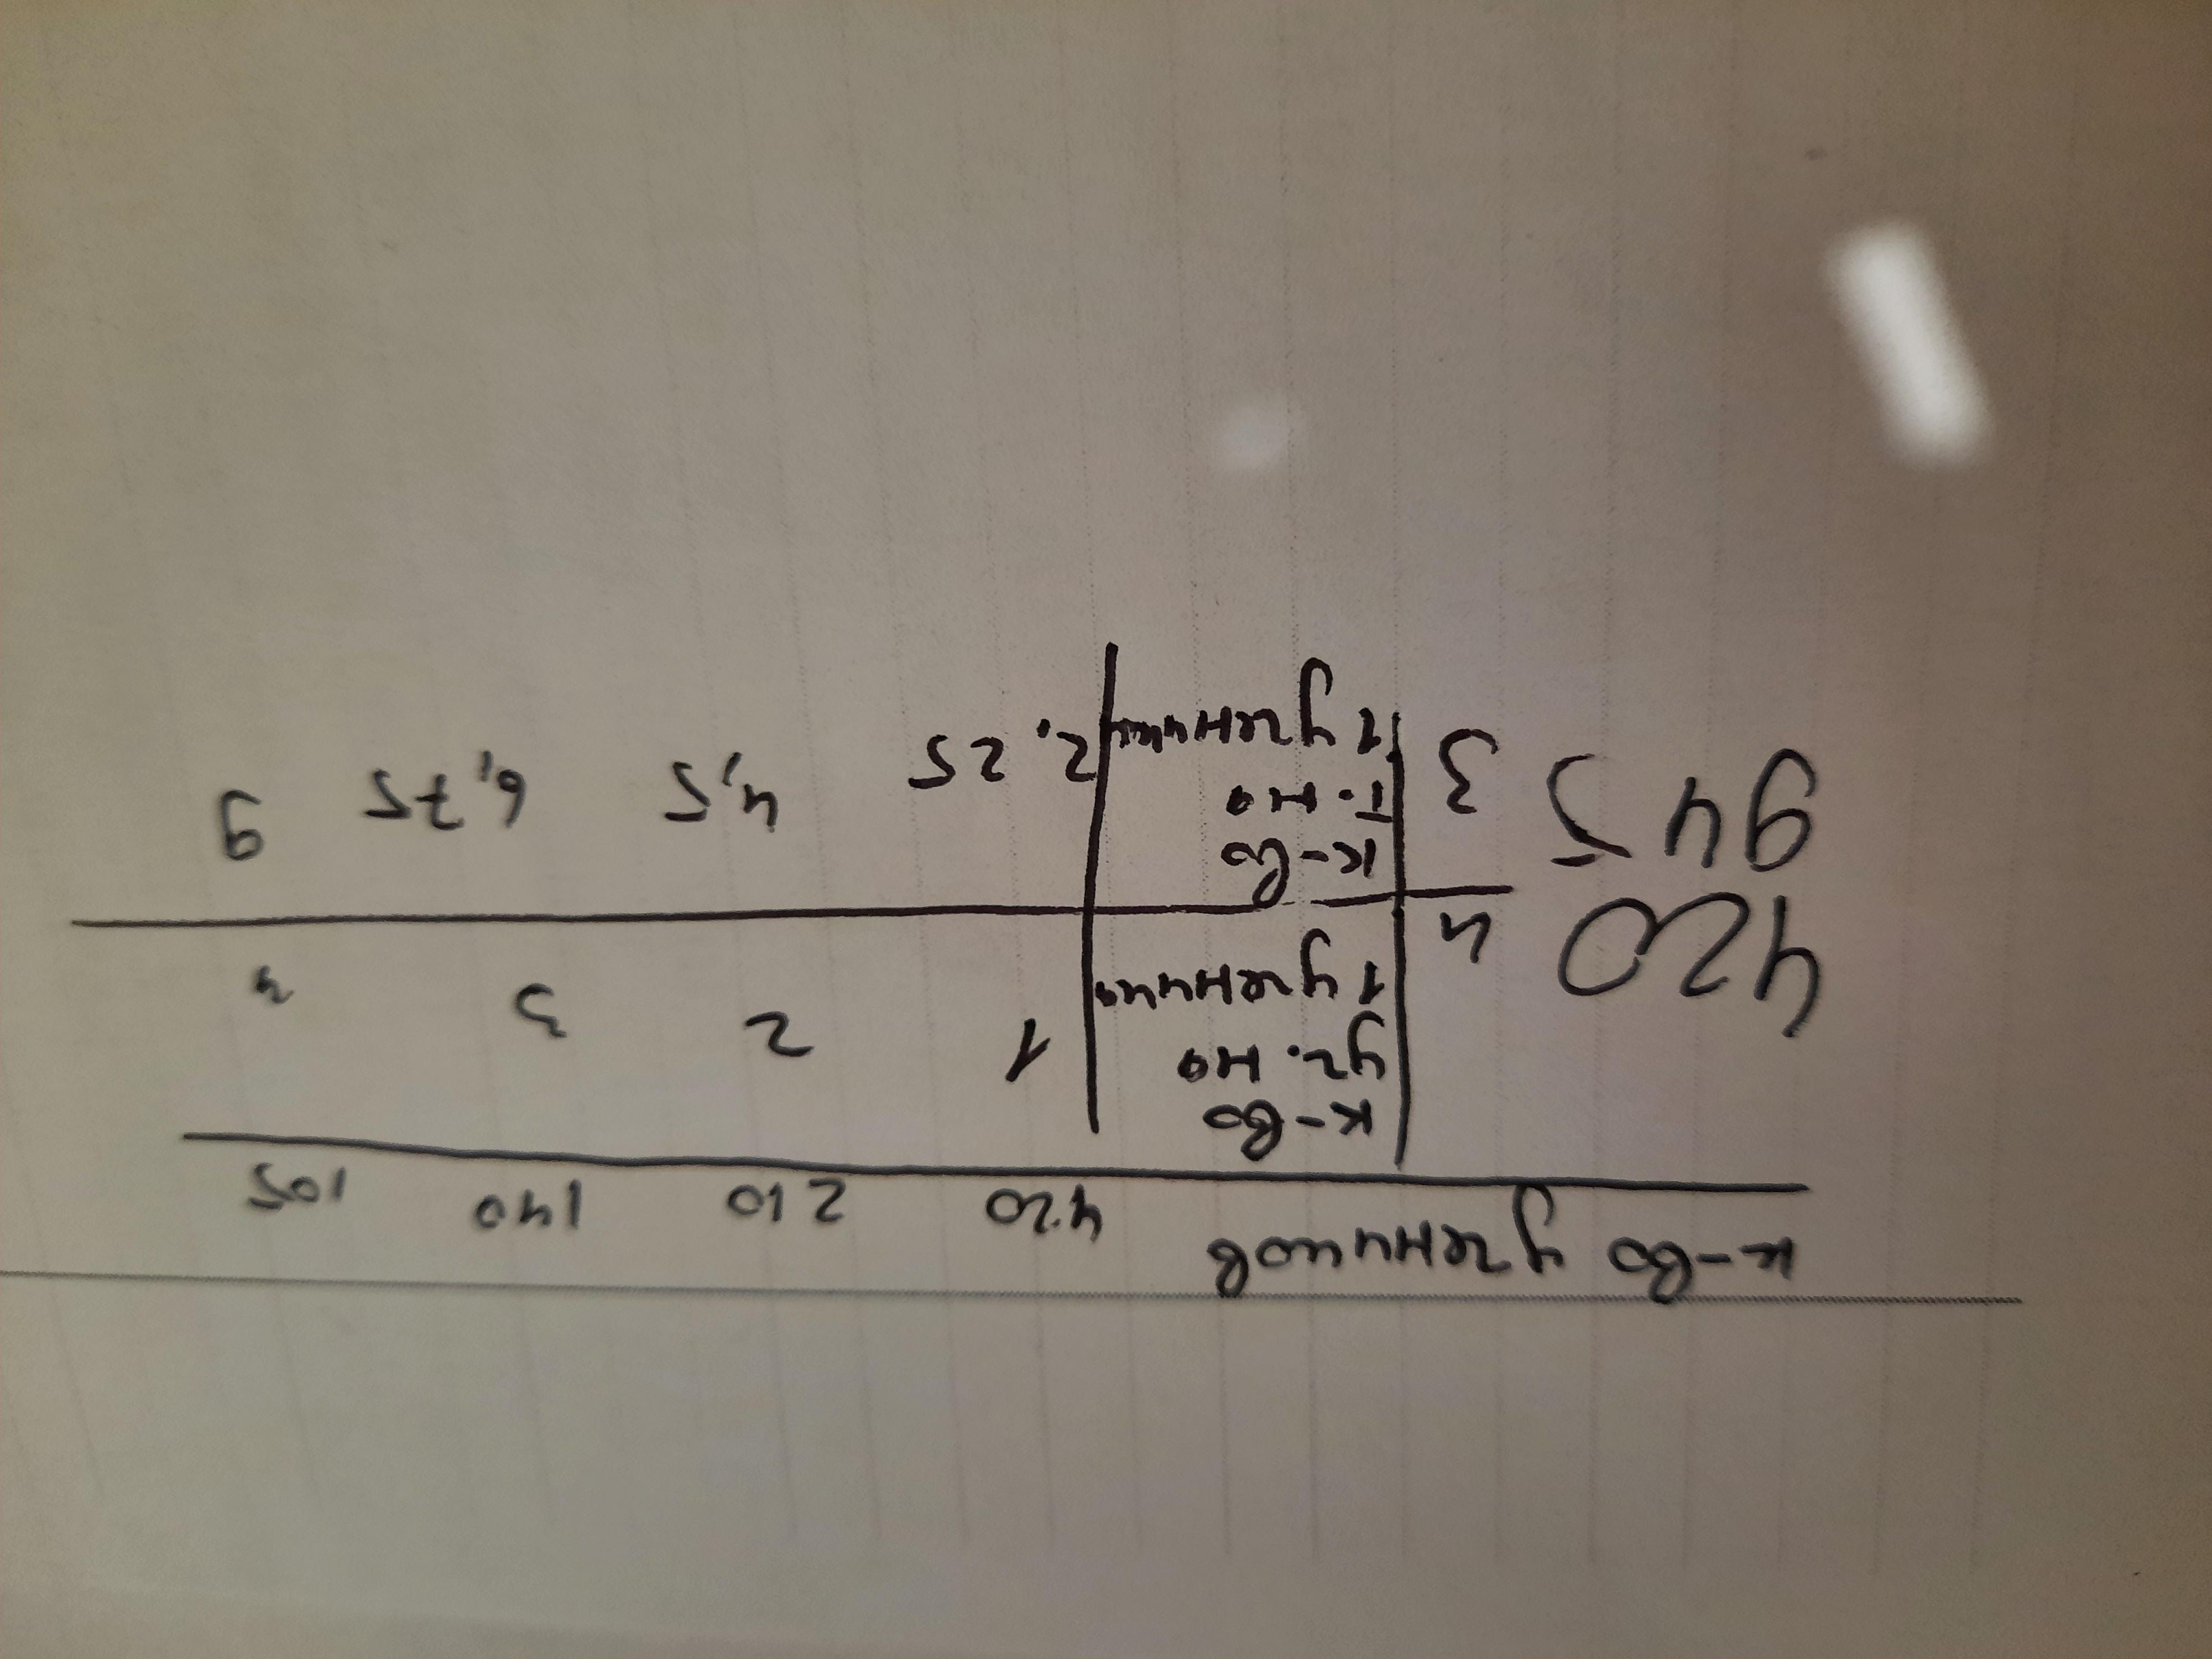 к-во учеников 420 210 140 105
к-во
уч. на
1 ученика
1 2 3 4
420 4
945 3
к-во
т. на
1 ученика
2,25 4,5 6,75 9